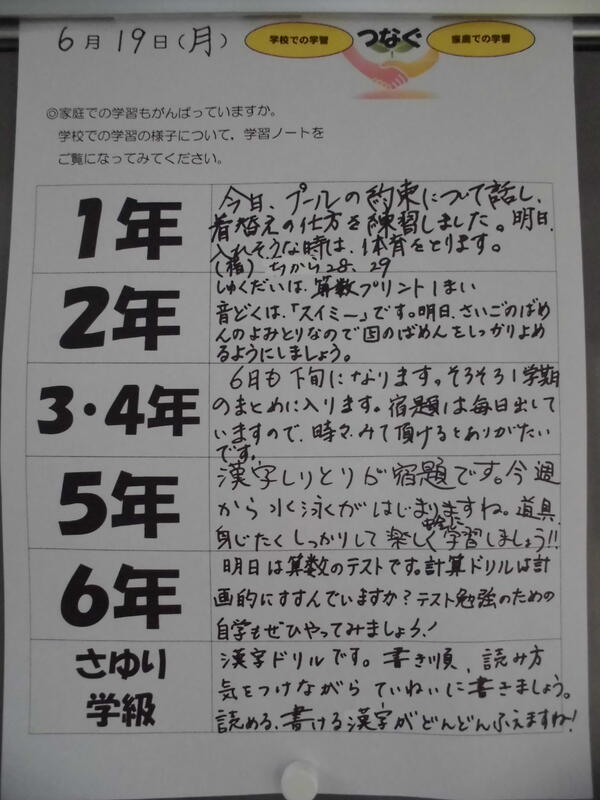 6月19日(月)
学校での学習 つなぐ 家庭での学習
◎家庭での学習もがんばっていますか。
学校での学習の様子について，学習ノートを
ご覧になってみてください。
1年
今日、プールの約束について話し、
着替えの仕方を練習しました。明日、
入れそうな時は、体育をとります。
(宿) ちから28、29
2年
しゅくだいは、算数プリント1まい
音どくは、「スイミー」です。明日、さいごのばめ
んのよみとりなので⑤のばめんをしっかりよめ
るようにしましょう。
3・4年
6月も下旬になります。そろそろ1学期
のまとめに入ります。宿題は毎日出して
いますので、時々みて頂けるとありがたい
です。
5年
漢字しりとりが宿題です。今週
から水泳がはじまりますね。道具、
身じたくしっかりして楽しく安全に学習しましょう!!
6年
明日は算数のテストです。計算ドリルは計
画的にすすんでいますか？テスト勉強のための
自学もぜひやってみましょう！
さゆり
学級
漢字ドリルです。書き順、読み方
気をつけながらていねいに書きましょう。
読める、書ける漢字がどんどんふえますね！